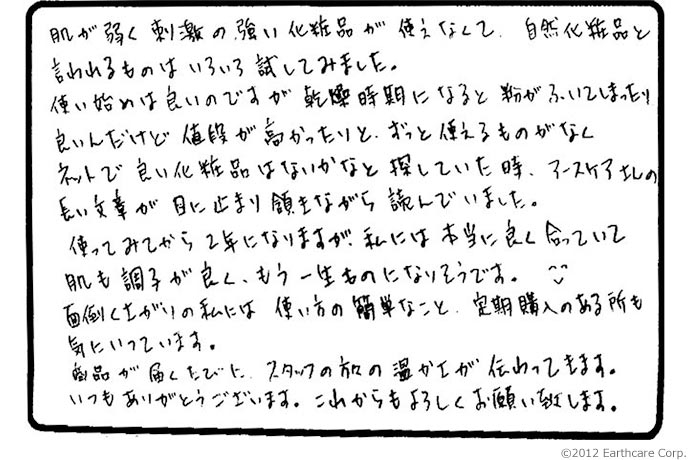 肌が弱く刺激の強い化粧品が使えなくて、自然化粧品と
言われるものはいろいろ試してみました。
使い始めは良いのですが乾燥時期になると粉がふいてしまったり
良いんだけど値段が高かったりと、ずっと使えるものがなく
ネットで良い化粧品はないかなと探していた時、アースケアさんの
長い文章が目に止まり頷きながら読んでいました。
使ってみてから2年になりますが、私には本当に良く合っていて
肌も調子が良く、もう一生ものになりそうです。
面倒くさがりの私には使い方の簡単なこと、定期購入のある所も
気にいっています。
商品が届くたびに、スタッフの方の温かさが伝わってきます。
いつもありがとうございます。これからもよろしくお願い致します。
©2012 Earthcare Corp.